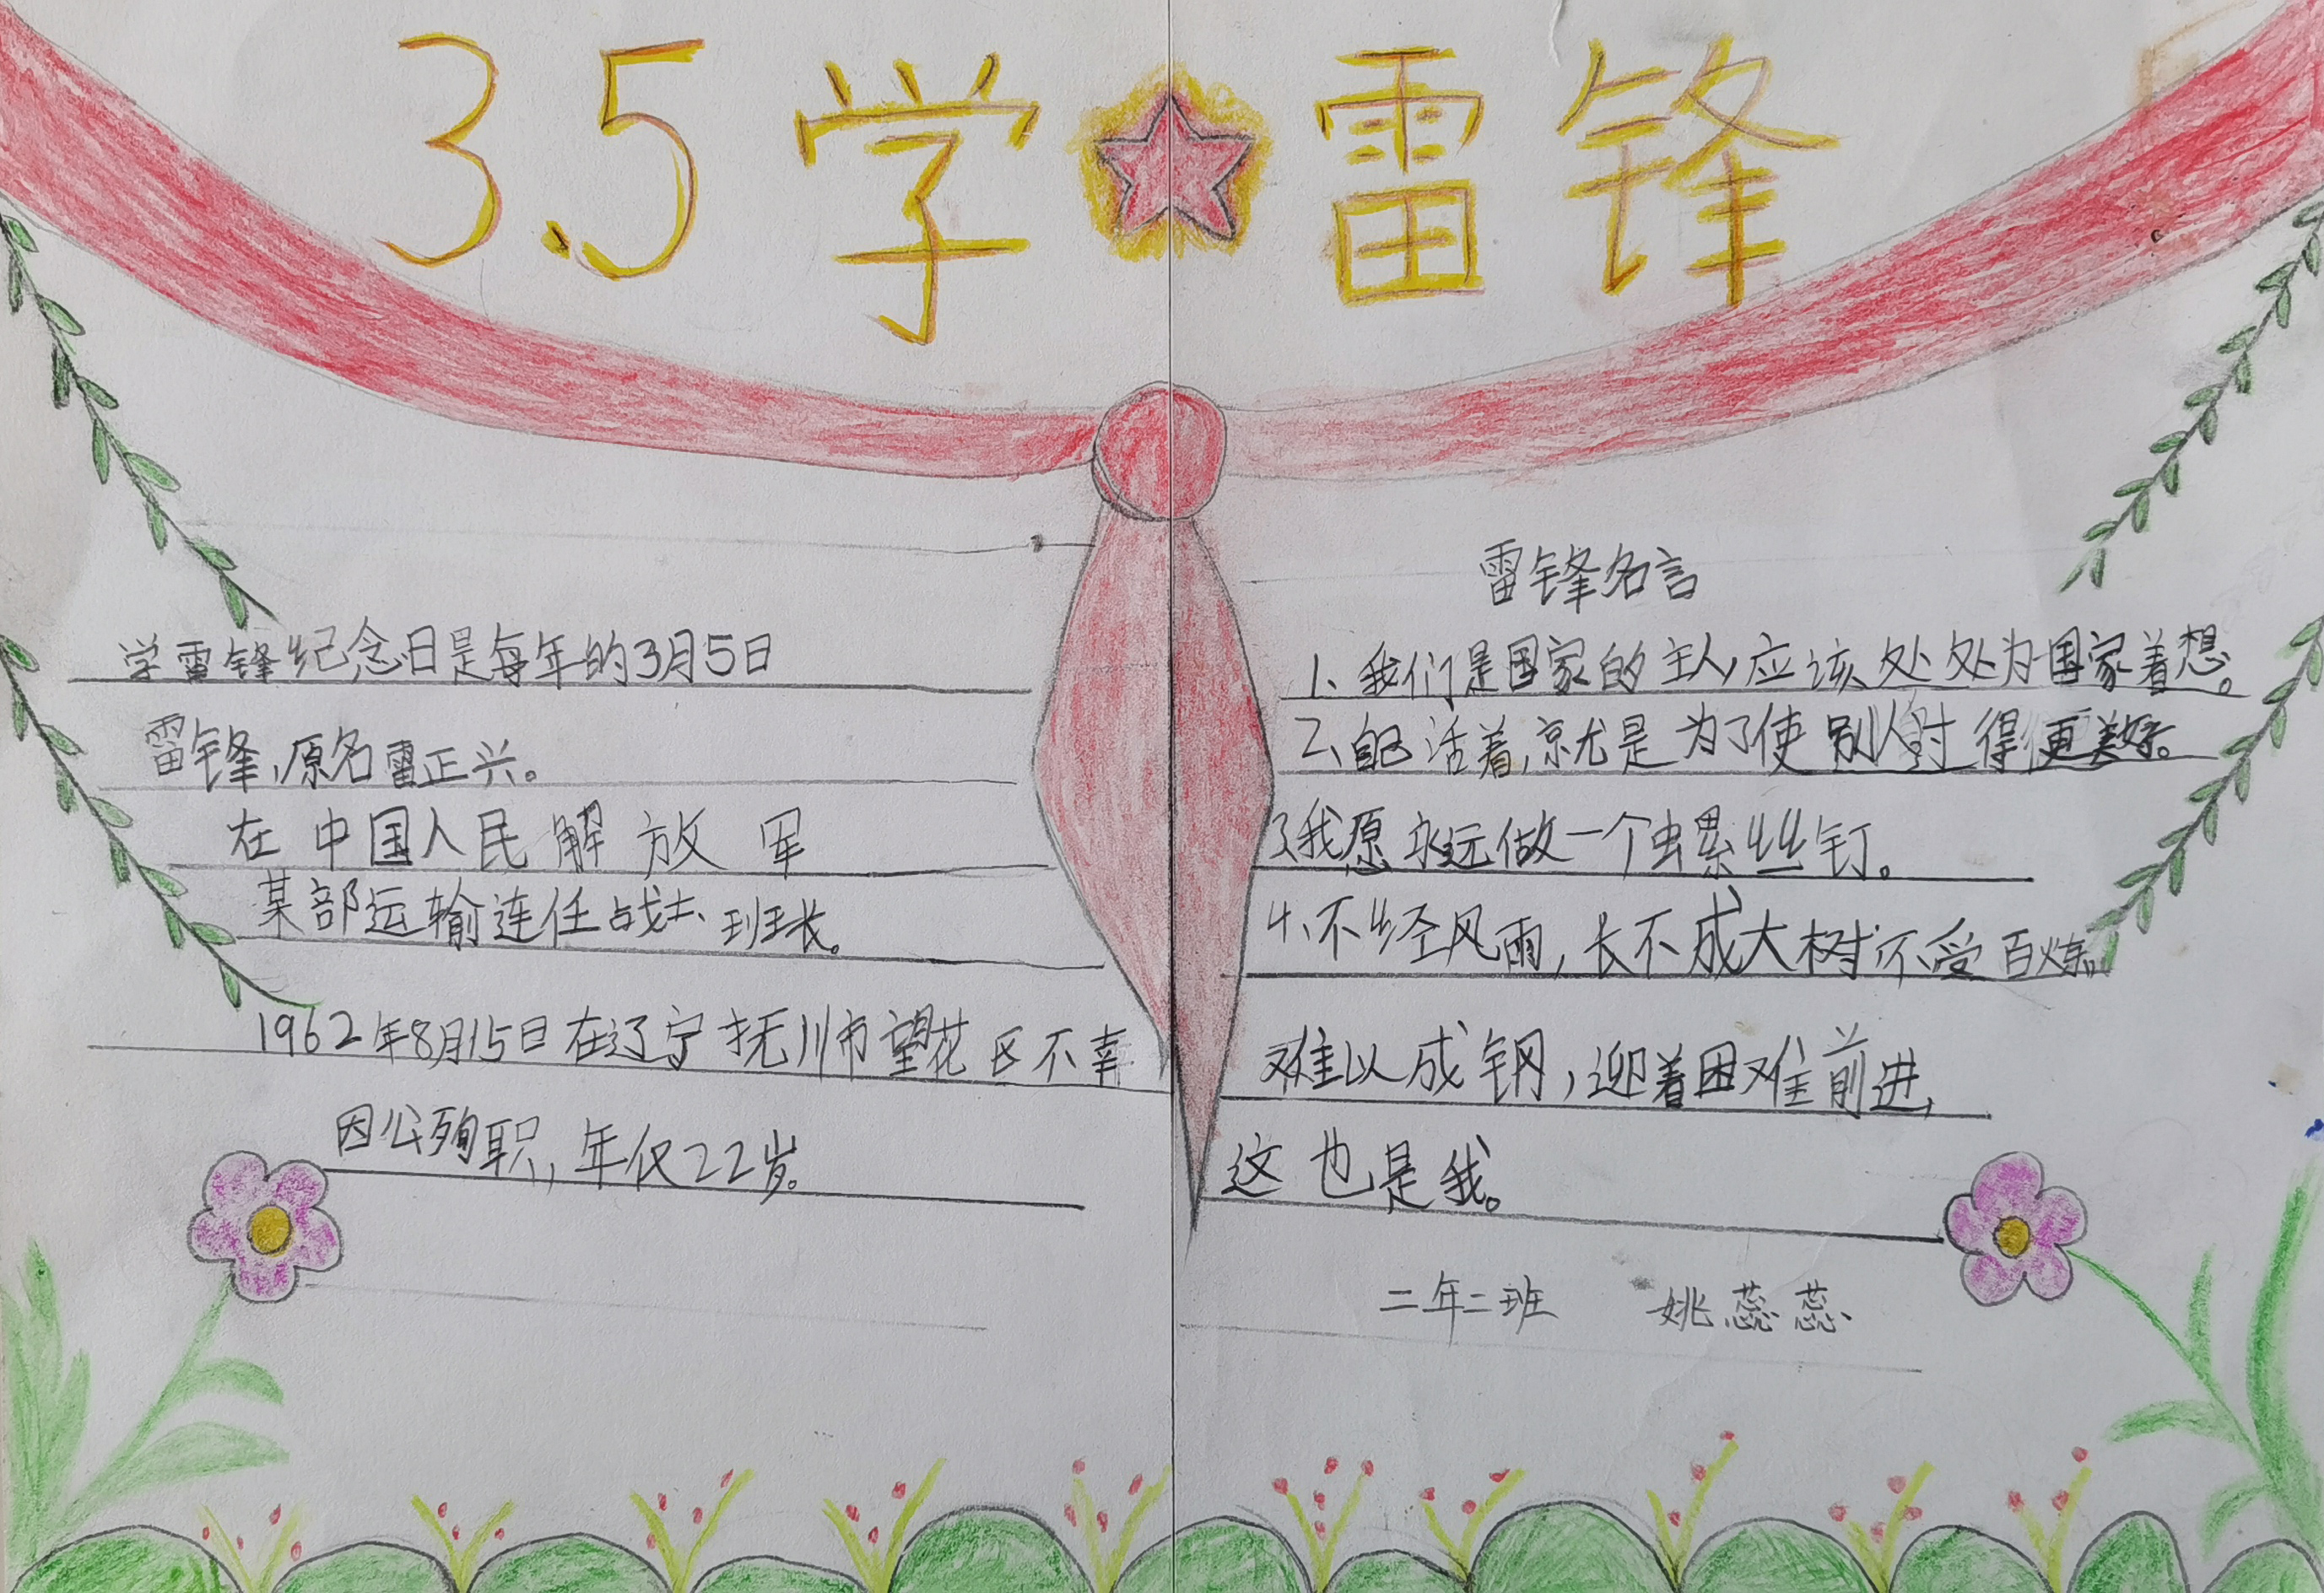 3.5学雷锋
学雷锋纪念日是每年的3月5日
雷锋,原名雷正兴。
在中国人民解放军
某部运输连任战士、班长。
1962年8月15日在辽宁抚川市望花区不幸
因公殉职,年仅22岁。
雷锋名言
1、我们是国家的主人,应该处处为国家着想。
2、自己活着,就是为了使别人过得更美好。
3我愿永远做一个螺丝钉。
4、不经风雨,长不成大树,不受百炼,
难以成钢,迎着困难前进,
这也是我。
二年二班 姚蕊蕊